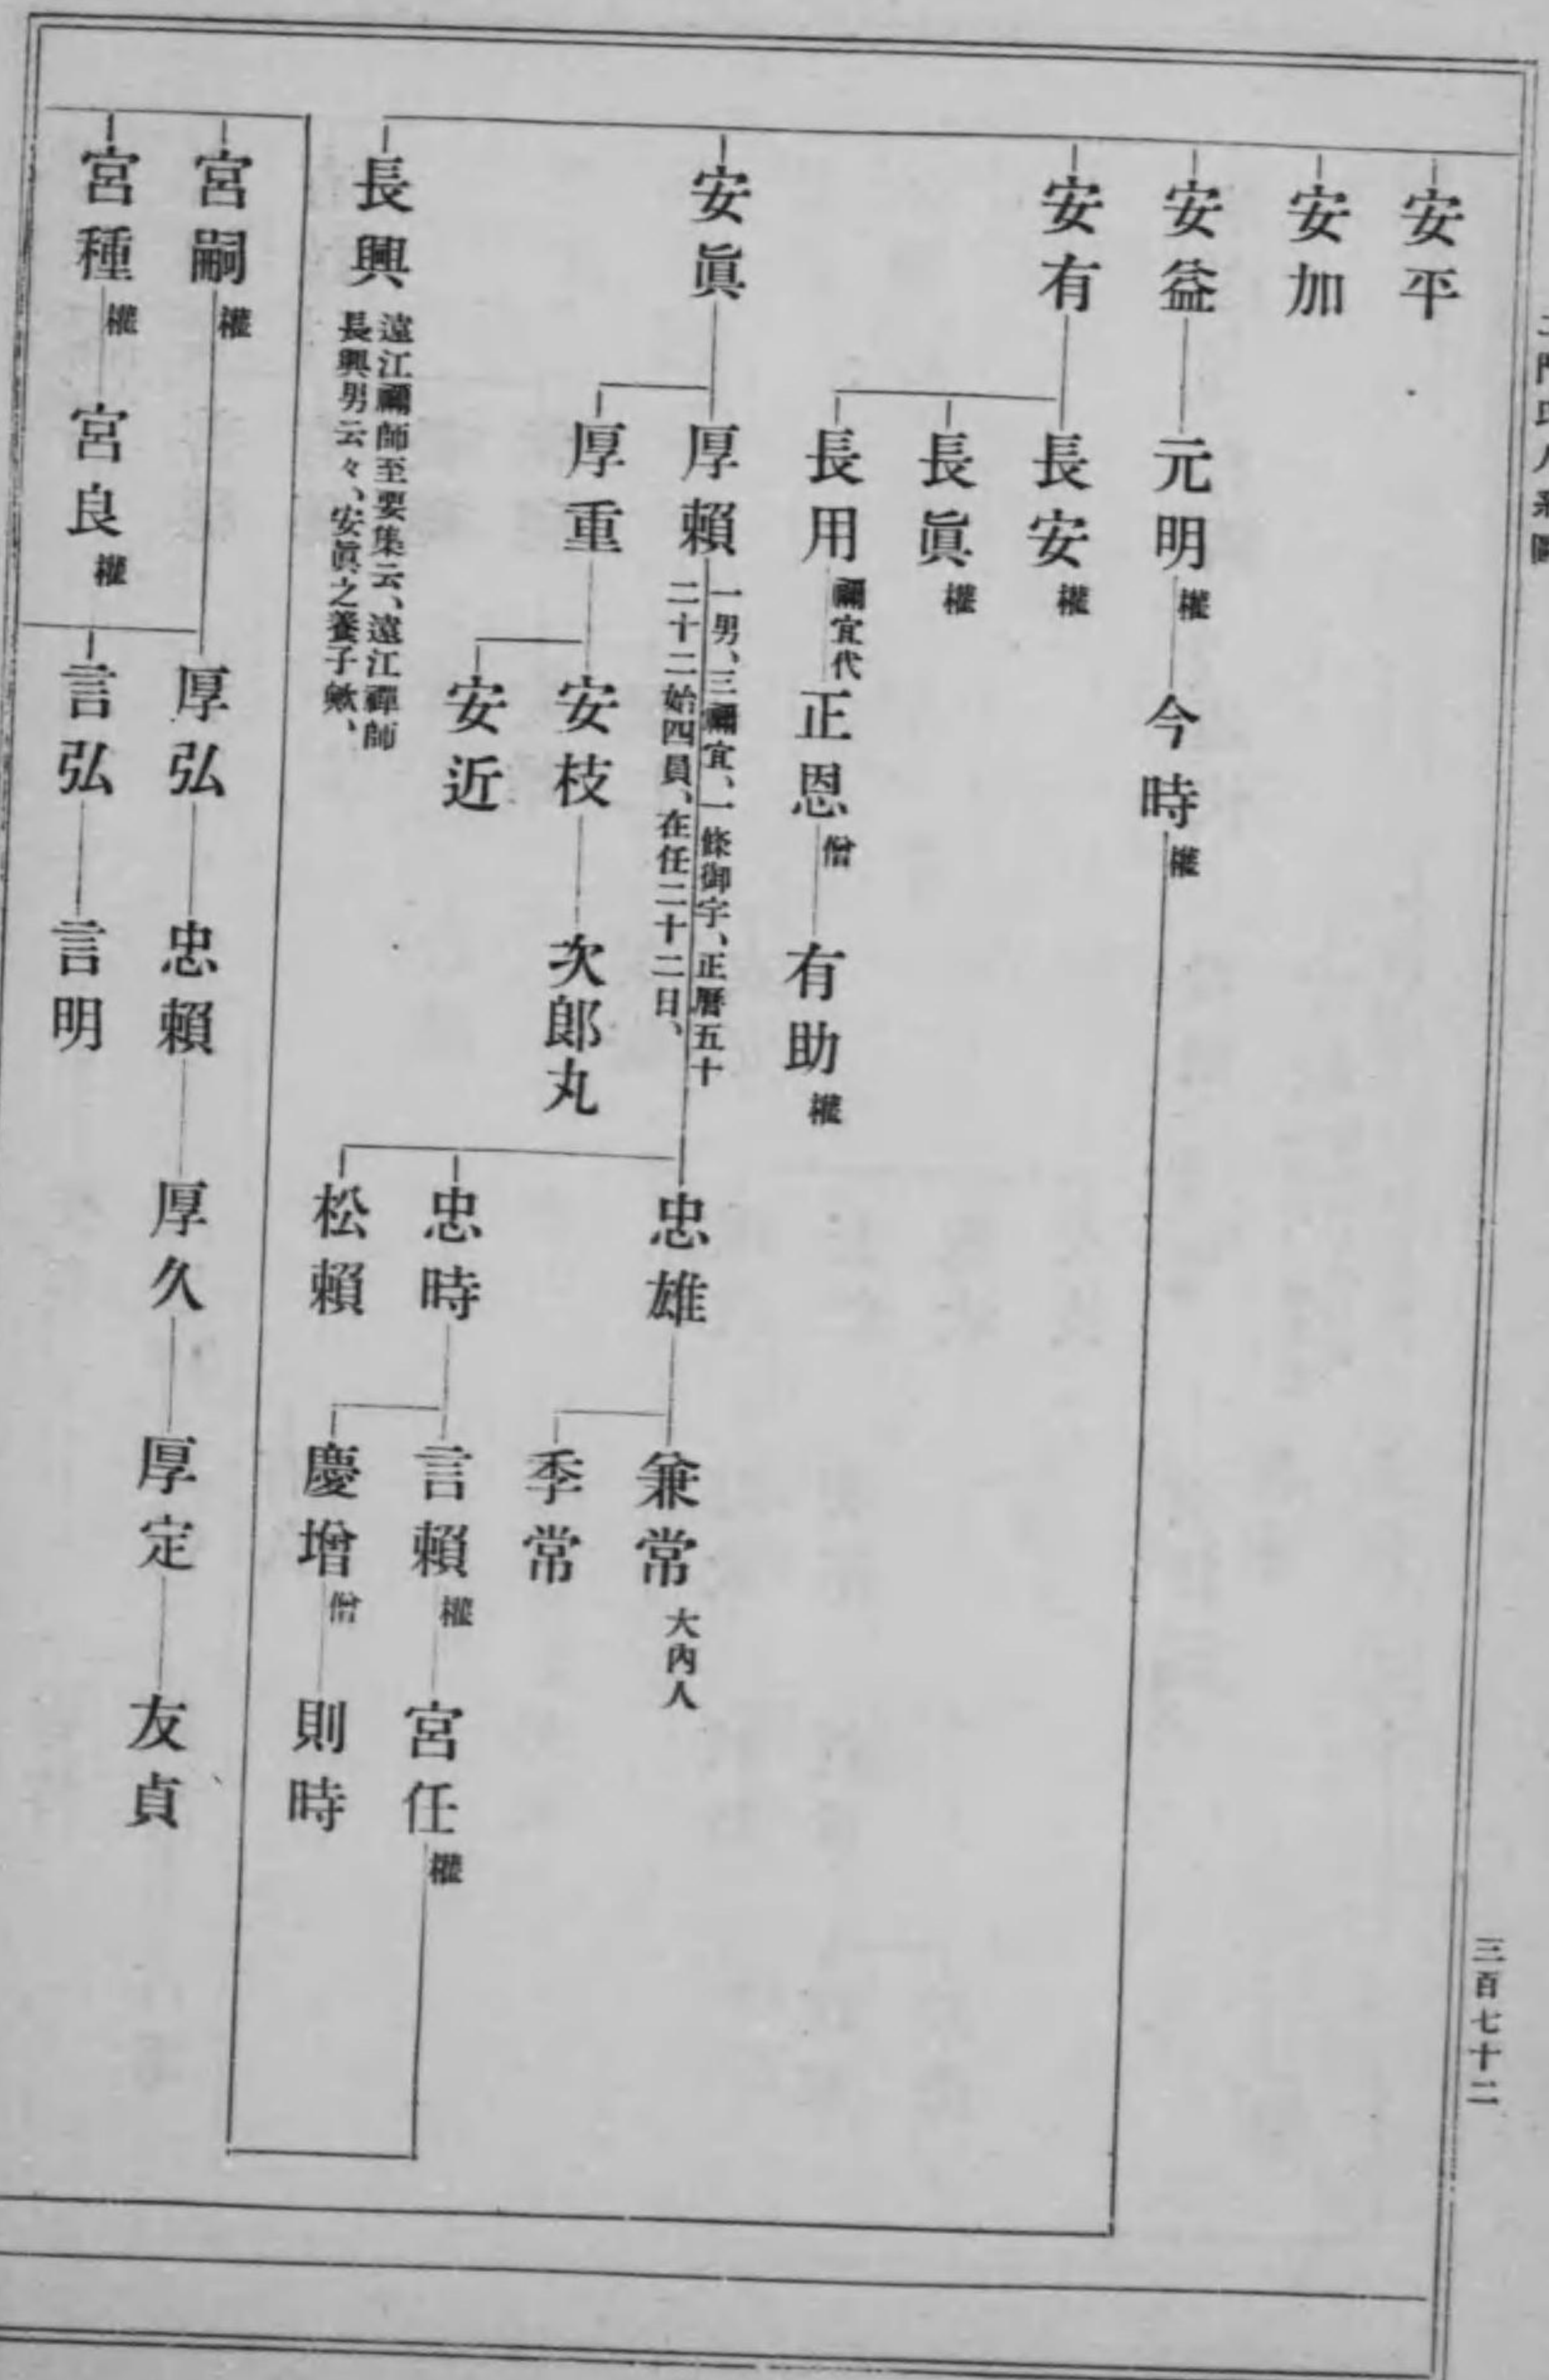 三百七十二
安平
安加
安益
元明 權
今時 權
安有
長安 權
長眞 權
長用 禰宜代
正恩 僧
有助 權
安眞
厚賴
一男、三禰宜、一條御宇、正曆五十
二十二始四員、在任二十二日、
忠雄
兼常 大內人
季常
忠時
言賴 權
宮任 權
慶增 僧
則時
松賴
厚重
安枝
次郎丸
安近
長興
遠江禰師至要集云、遠江禪師
長興男云々、安眞之養子歟、
宮嗣 權
厚弘
忠賴
厚久
厚定
友貞
言弘
言明
宮種 權
宮良 權